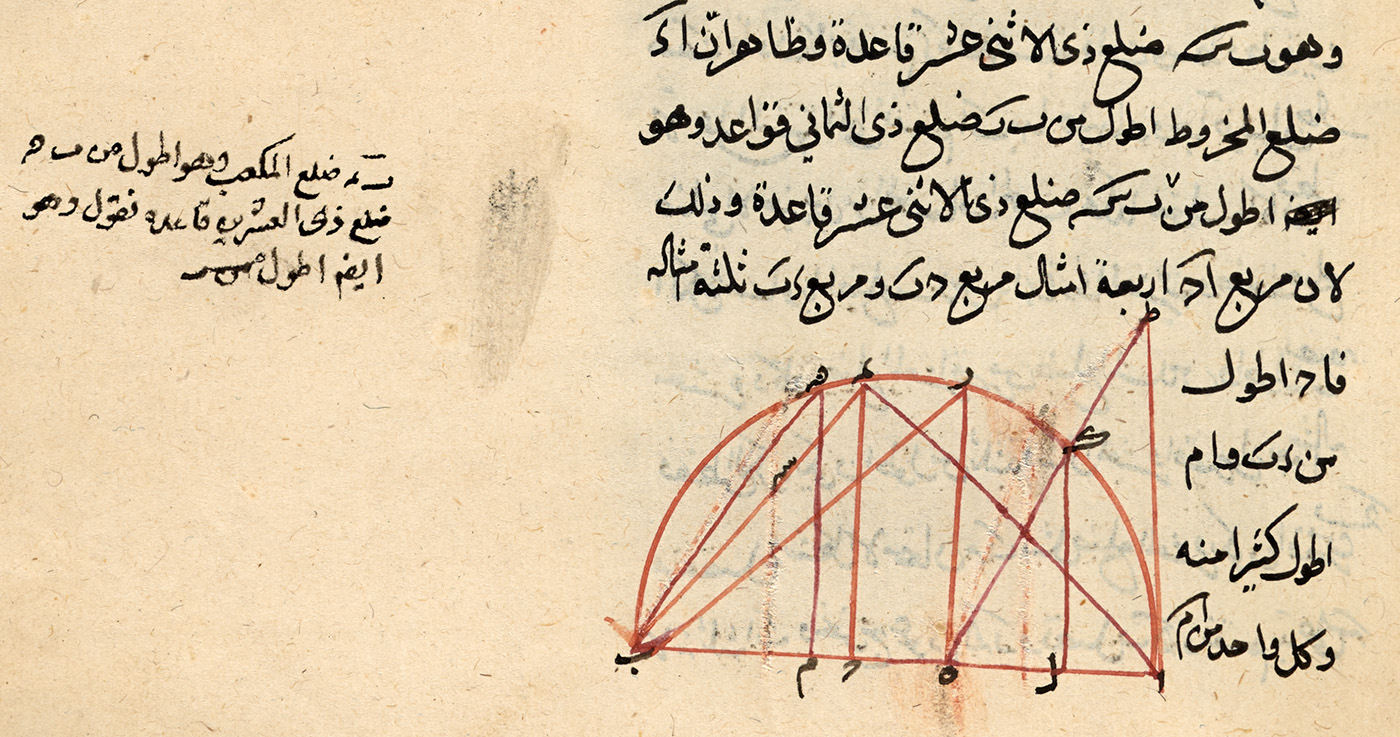 وهو ب سه ضلع ذى الاثنى عشر قاعدة وظاهر ان اء
ضلع المخروط اطول من ب ر ضلع ذى الثمانى قواعد وهو
اطول من ب سه ضلع ذى الاثنى عشر قاعدة وذلك
لان مربع اد اربعة امثال مربع دب ومربع ءب ثلثة امثاله
فاد اطول
من ءب و ام
اطول كثيرا منه
وكل واحد من ام
ضلع المكعب وهو اطول من ب ه
ضلع ذى العشرين قاعده نقول وهو
ايضا اطول من
ط
ه
ر
ك
س
ب
م
د
ه
ل
ا